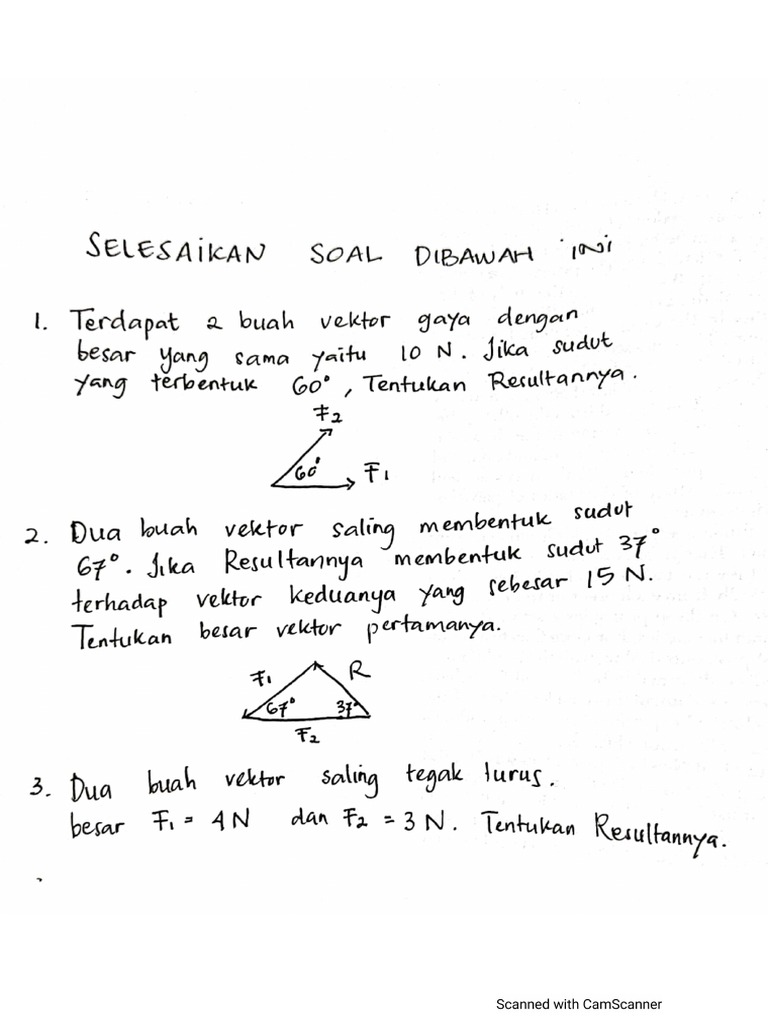 SELESAiKAN SOAL DIBAWAH iNi
1. Terdapat 2 buah vektor gaya dengan
besar yang sama yaitu 10 N. Jika sudut
yang terbentuk 60°, Tentukan Resultannya.
F2
60°
F1
2. Dua buah vektor saling membentuk sudut
67°. Jika Resultannya membentuk sudut 37°
terhadap vektor keduanya yang sebesar 15 N.
Tentukan besar vektor pertamanya.
F1 R
67° 37°
F2
3. Dua buah vektor saling tegak lurus.
besar F1 = 4 N dan F2 = 3 N. Tentukan Resultannya.
Scanned with CamScanner